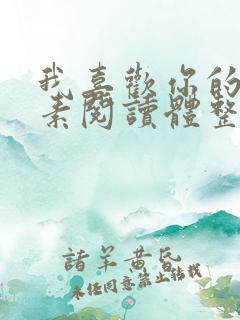 我喜歡你的
素閱讀體整
諸羊黃昏
未經同意禁止轉載